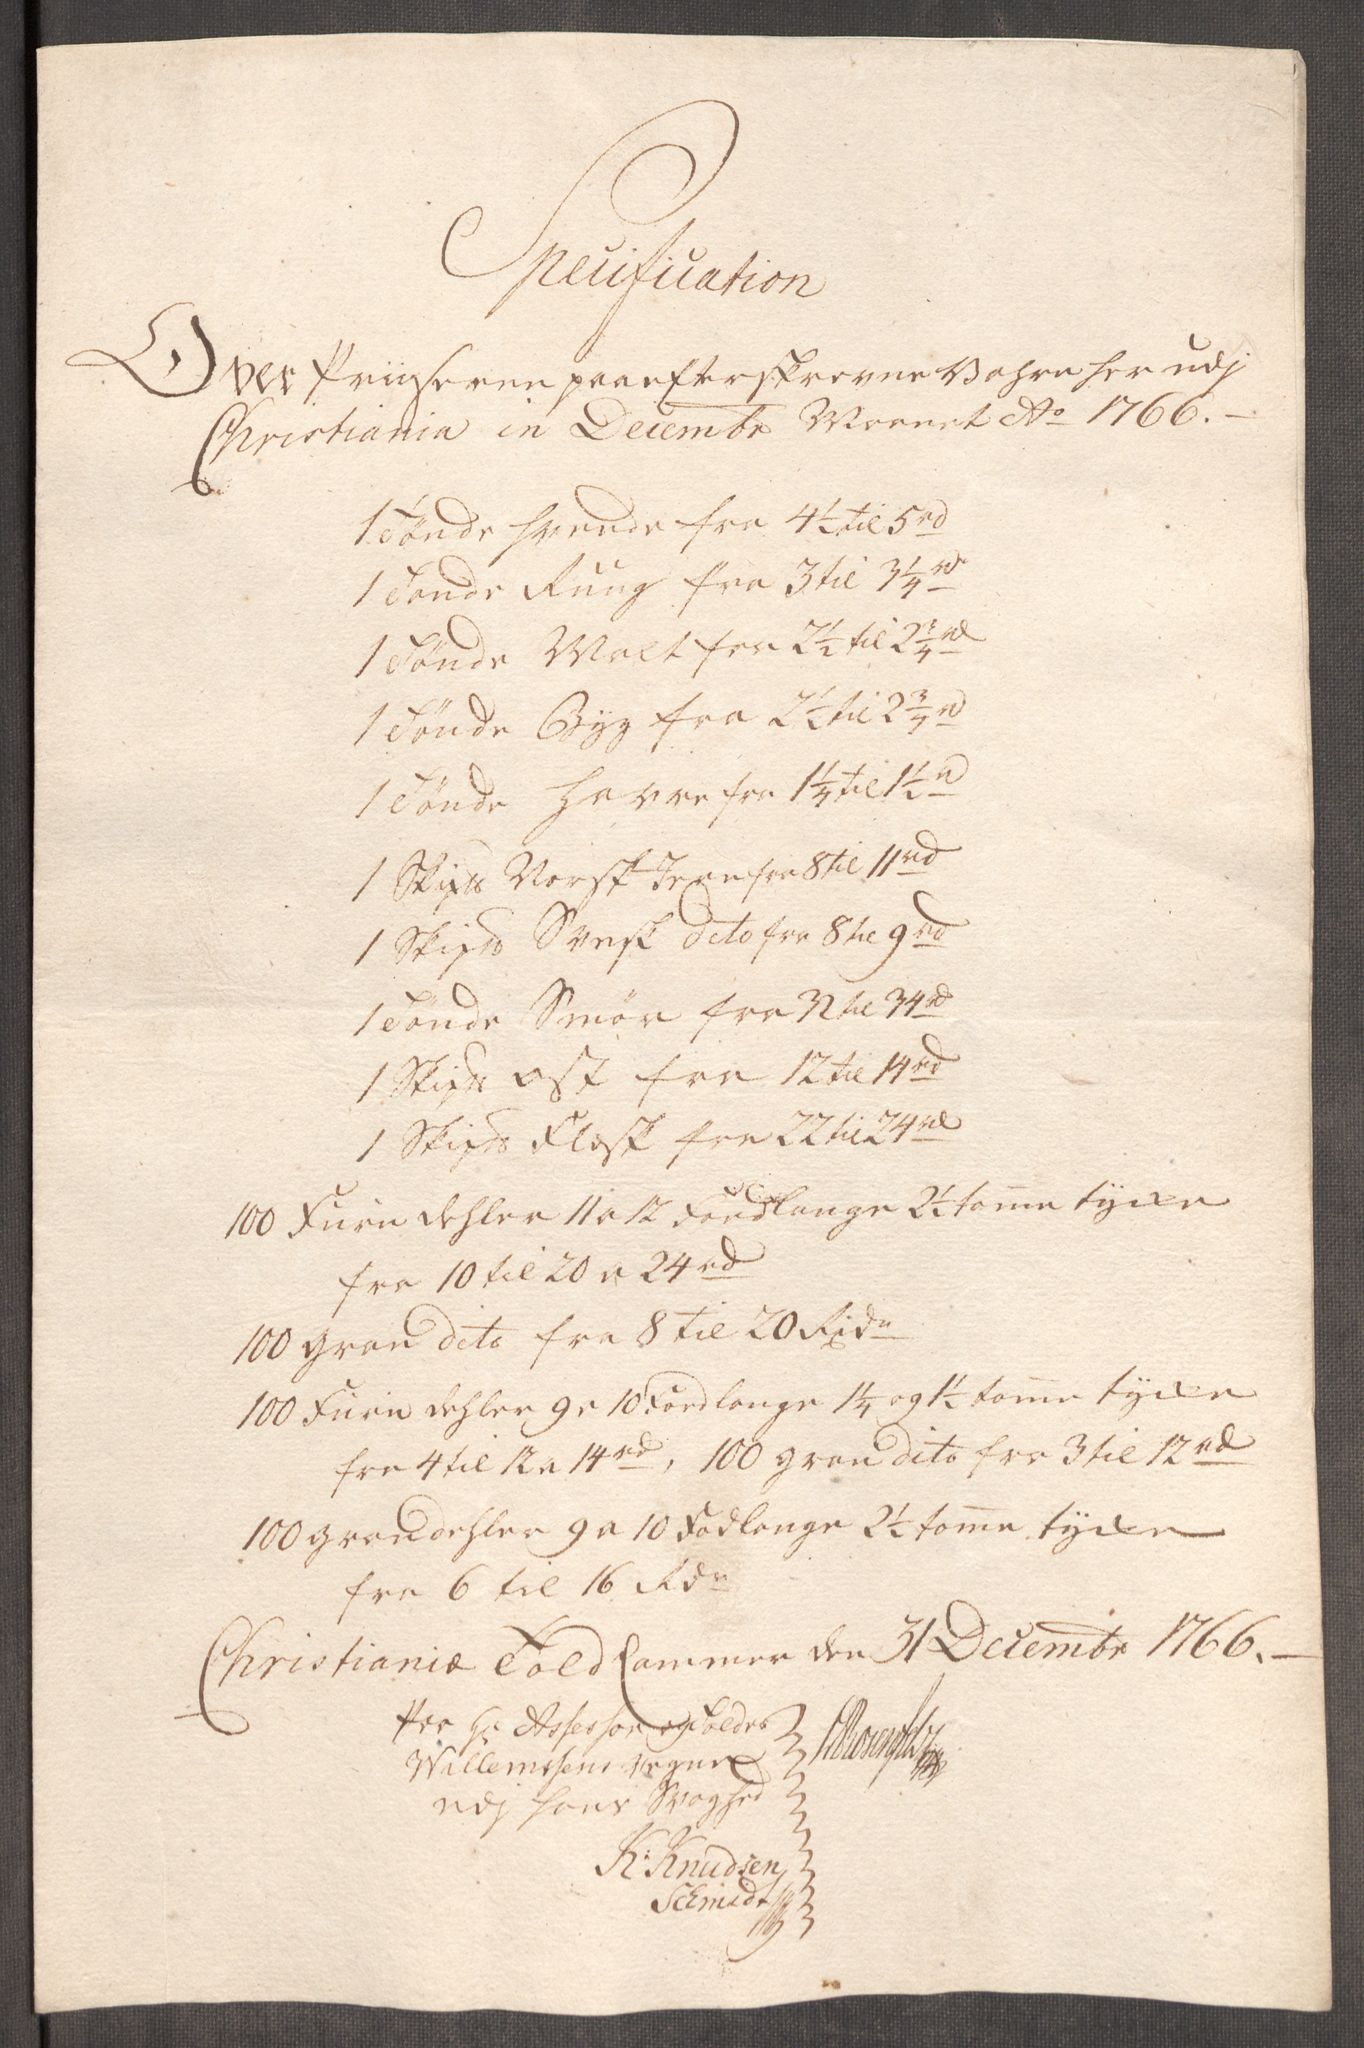 Specification
Over Priiserne paa efterskrevne Vahre her udj
Christiania in Decembr Maanet Ao 1766.
1 Tønde Hveede fra 4½ til 5 rd
1 Tønde Ruug fra 3 til 3¼ rdr
1 Tønde Malt fra 2½ til 2¾ rd
1 Tønde Byg fra 2½ til 2¾ rd
1 Tønde Havre fra 1¼ til 1½ rd
1 Skips Norsk Jern fra 8 til 11 rd
1 Skips Svesk dito fra 8 til 9 rd
1 Tønde Smør fra 32 til 34 rd
1 Skips ost fra 12 til 14 rd
1 Skips Flesk fra 22 til 24 rd
100 Furu dehler 11 a 12 Foedlange 2½ tome tycke
fra 10 til 20 a 24 rd
100 gran dito fra 8 til 20 Rixdr
100 Furu dehler 9 a 10 Foedlange 1¼ og 1½ tome tycke
fra 4 til 12 a 14 rd, 100 gran dito fra 3 til 12 rd
100 gran dehler 9 a 10 Fodlange 2½ tome tycke
fra 6 til 16 Rdr
Christianiæ Told Cammer den 31 Decembr 1766.
Paa Hr Assessor og Tolder
Wallemsens vegne
udj hans Svaghed
K: Knudsen
Schmidt